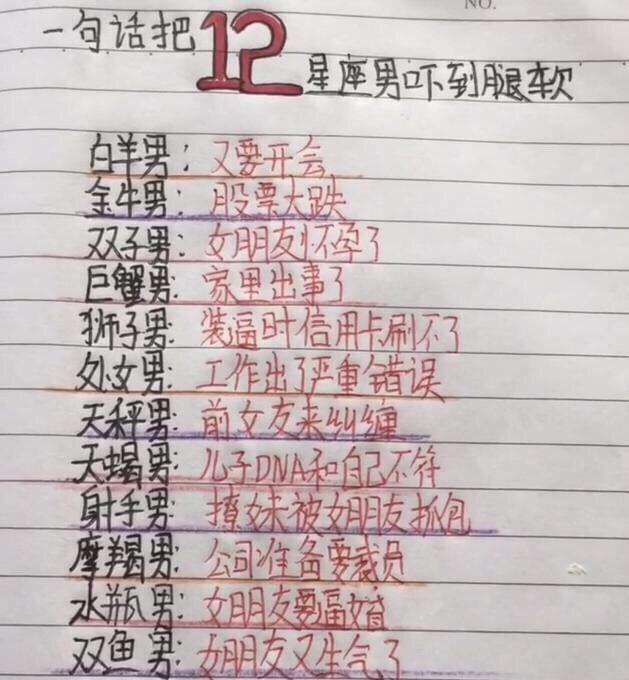 NO.
一句话把12星座男吓到腿软
白羊男：又要开会
金牛男：股票大跌
双子男：女朋友怀孕了
巨蟹男：家里出事了
狮子男：装逼时信用卡刷不了
处女男：工作出了严重错误
天秤男：前女友来纠缠
天蝎男：儿子DNA和自己不符
射手男：撩妹被女朋友抓包
摩羯男：公司准备要裁员
水瓶男：女朋友要逼婚
双鱼男：女朋友又生气了